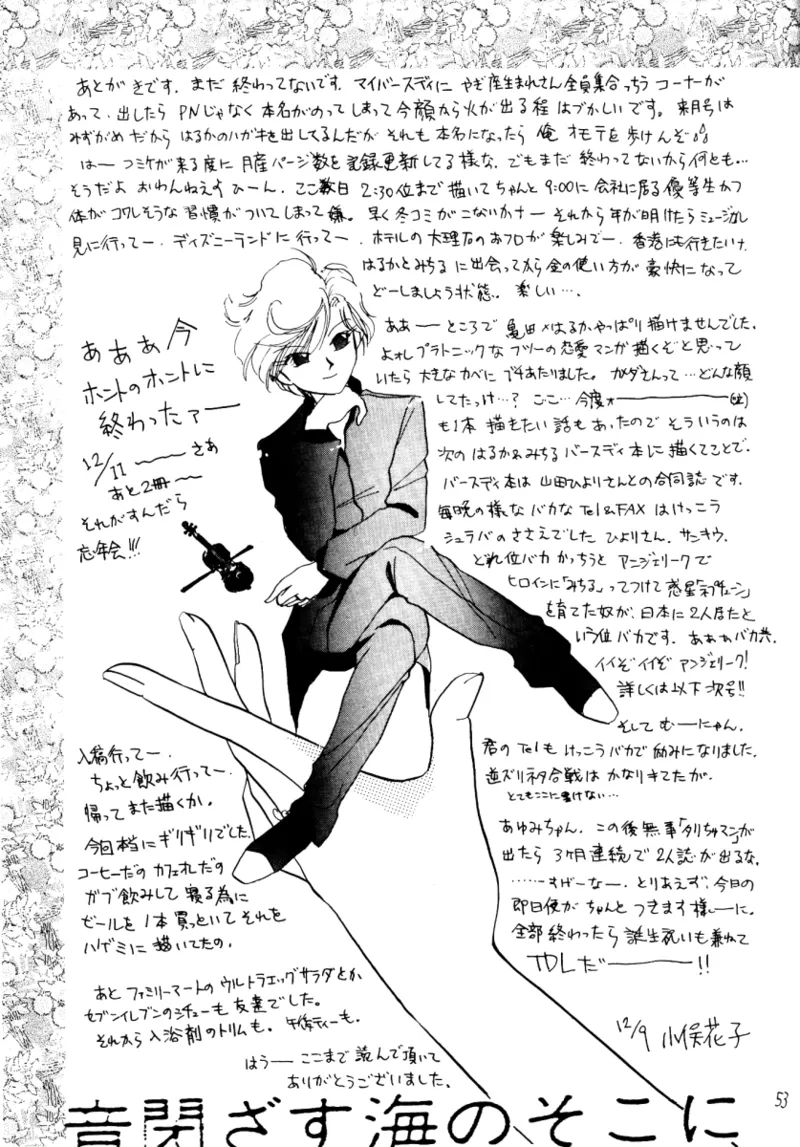 あとがきです。まだ終わってないです。マイバースディにやぎ座生まれさん全員集合っちうコーナーが
あって、出したらPNじゃなく本名がのってしまって今顔から火が出る程はづかしいです。来月号は
みずがめだからはるかのハガキを出してるんだが それも本名になったら俺オモテを歩けんぞ
はー コミケが来る度に月産ページ数を記録更新してる様な。でもまだ終わってないから何とも…
そうだよ おわんねえす ひーん。ここ数日 2:30位まで描いてちゃんと9:00に会社に居る優等生かつ
体がコワレそうな習慣がついてしまって嫌。早く冬コミがこないかナー それから年が明けたらミュージカル
見に行ってー、ディズニーランドに行ってー、ホテルの大理石のおフロが楽しみでー、香港にも行きたいけ、
はるかとみちるに出会ってから金の使い方が豪快になって
どーしましょう状態。楽しい…。
ああーところで亀田×はるかやっぱり描けませんでした。
よおしプラトニックなフツーの恋愛マンガ描くぞと思って
いたら大きなカベにブチあたりました。カメダさんって…どんな顔
してたっけ…?ここ…今度ォ―――
も1本描きたい話もあったのでそういうのは
次のはるか&みちるバースディ本に描くってことで。
バースディ本は山田ひよりさんとの合同誌です。
毎晩の様なバカなTel&FAXはけっこう
シュラバのささえでした ひよりさん、サンキウ。
どれ位バカかっちうとアンジェリークで
ヒロインに「みちる」ってつけて惑星「ネプチューン」
を育てた奴が、日本に2人居たと
いう位バカです。ああぁバカ共。
イイぞイイぞ アンジェリーク!
詳しくは以下次号!!
そしてむーにゃん。
君のTelもけっこうバカで励みになりました。
逆ズリネタ合戦はかなりキてたが。
とてもここに書けない…
あゆみちゃん。この後無事「タリちゃマン」が
出たら3ケ月連続で2人誌が出るな。
……すげーなー。とりあえず、今日の
即日便がちゃんとつきます様ーに。
全部終わったら誕生祝いも兼ねて
TDLだ―――!!
12/9 小俣花子
あああ今
ホントのホントに
終わったァー
12/11 ―― さあ
あと2冊―
それがすんだら
忘年会!!!
入稿行ってー、
ちょっと飲み行ってー、
帰ってまた描くか。
今回本当にギリギリでした。
コーヒーだのカフェオレだの
ガブ飲みして寝る為に
ビールを1本買っといてそれを
ハゲミに描いてたの。
あとファミリーマートのウルトラエッグサラダとか
セブンイレブンのシチューも友達でした。
それから入浴剤のトリムも。午後ティーも。
はうー ここまで読んで頂いて
ありがとうございました。
53
音閉ざす海のそこに